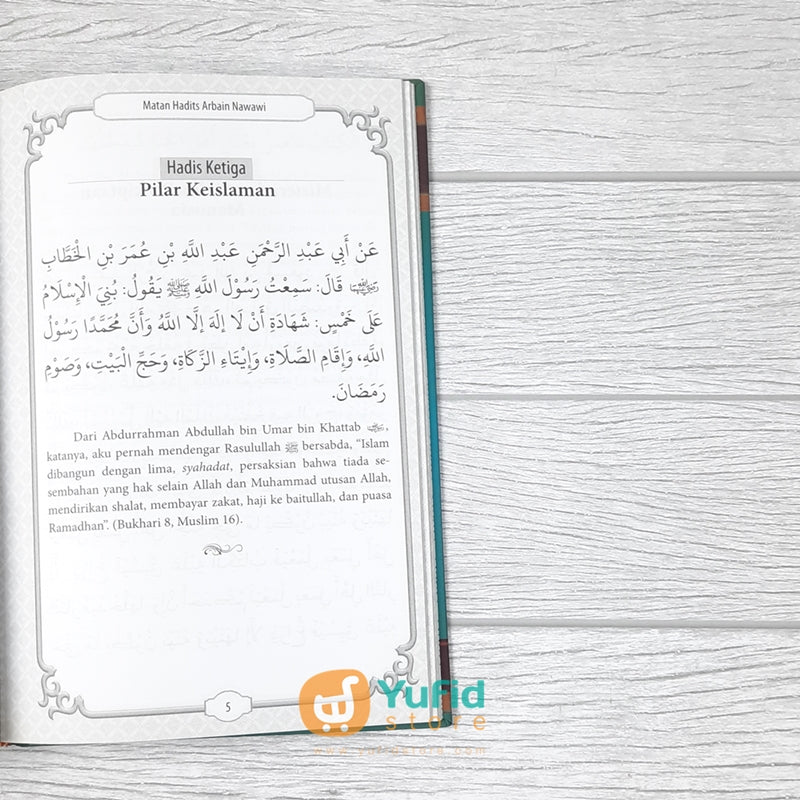 Matan Hadits Arbain Nawawi
Hadis Ketiga
Pilar Keislaman
عَنْ أَبِي عَبْدِ الرَّحْمَنِ عَبْدِ اللَّهِ بْنِ عُمَرَ بْنِ الْخَطَّابِ
قَالَ: سَمِعْتُ رَسُوْلَ اللَّهِ ﷺ يَقُولُ: بُنِيَ الْإِسْلَامُ
عَلَى خَمْسٍ: شَهَادَةِ أَنْ لَا إِلَهَ إِلَّا اللَّهُ وَأَنَّ مُحَمَّدًا رَسُوْلُ
اللَّهِ، وَإِقَامِ الصَّلَاةِ، وَإِيْتَاءِ الزَّكَاةِ، وَحَجِّ الْبَيْتِ، وَصَوْمِ
رَمَضَانَ.
Dari Abdurrahman Abdullah bin Umar bin Khattab ,
katanya, aku pernah mendengar Rasulullah ﷺ bersabda, “Islam
dibangun dengan lima, syahadat, persaksian bahwa tiada se-
sembahan yang hak selain Allah dan Muhammad utusan Allah,
mendirikan shalat, membayar zakat, haji ke baitullah, dan puasa
Ramadhan”. (Bukhari 8, Muslim 16).
5
Yufid
store
www.yufidstore.com